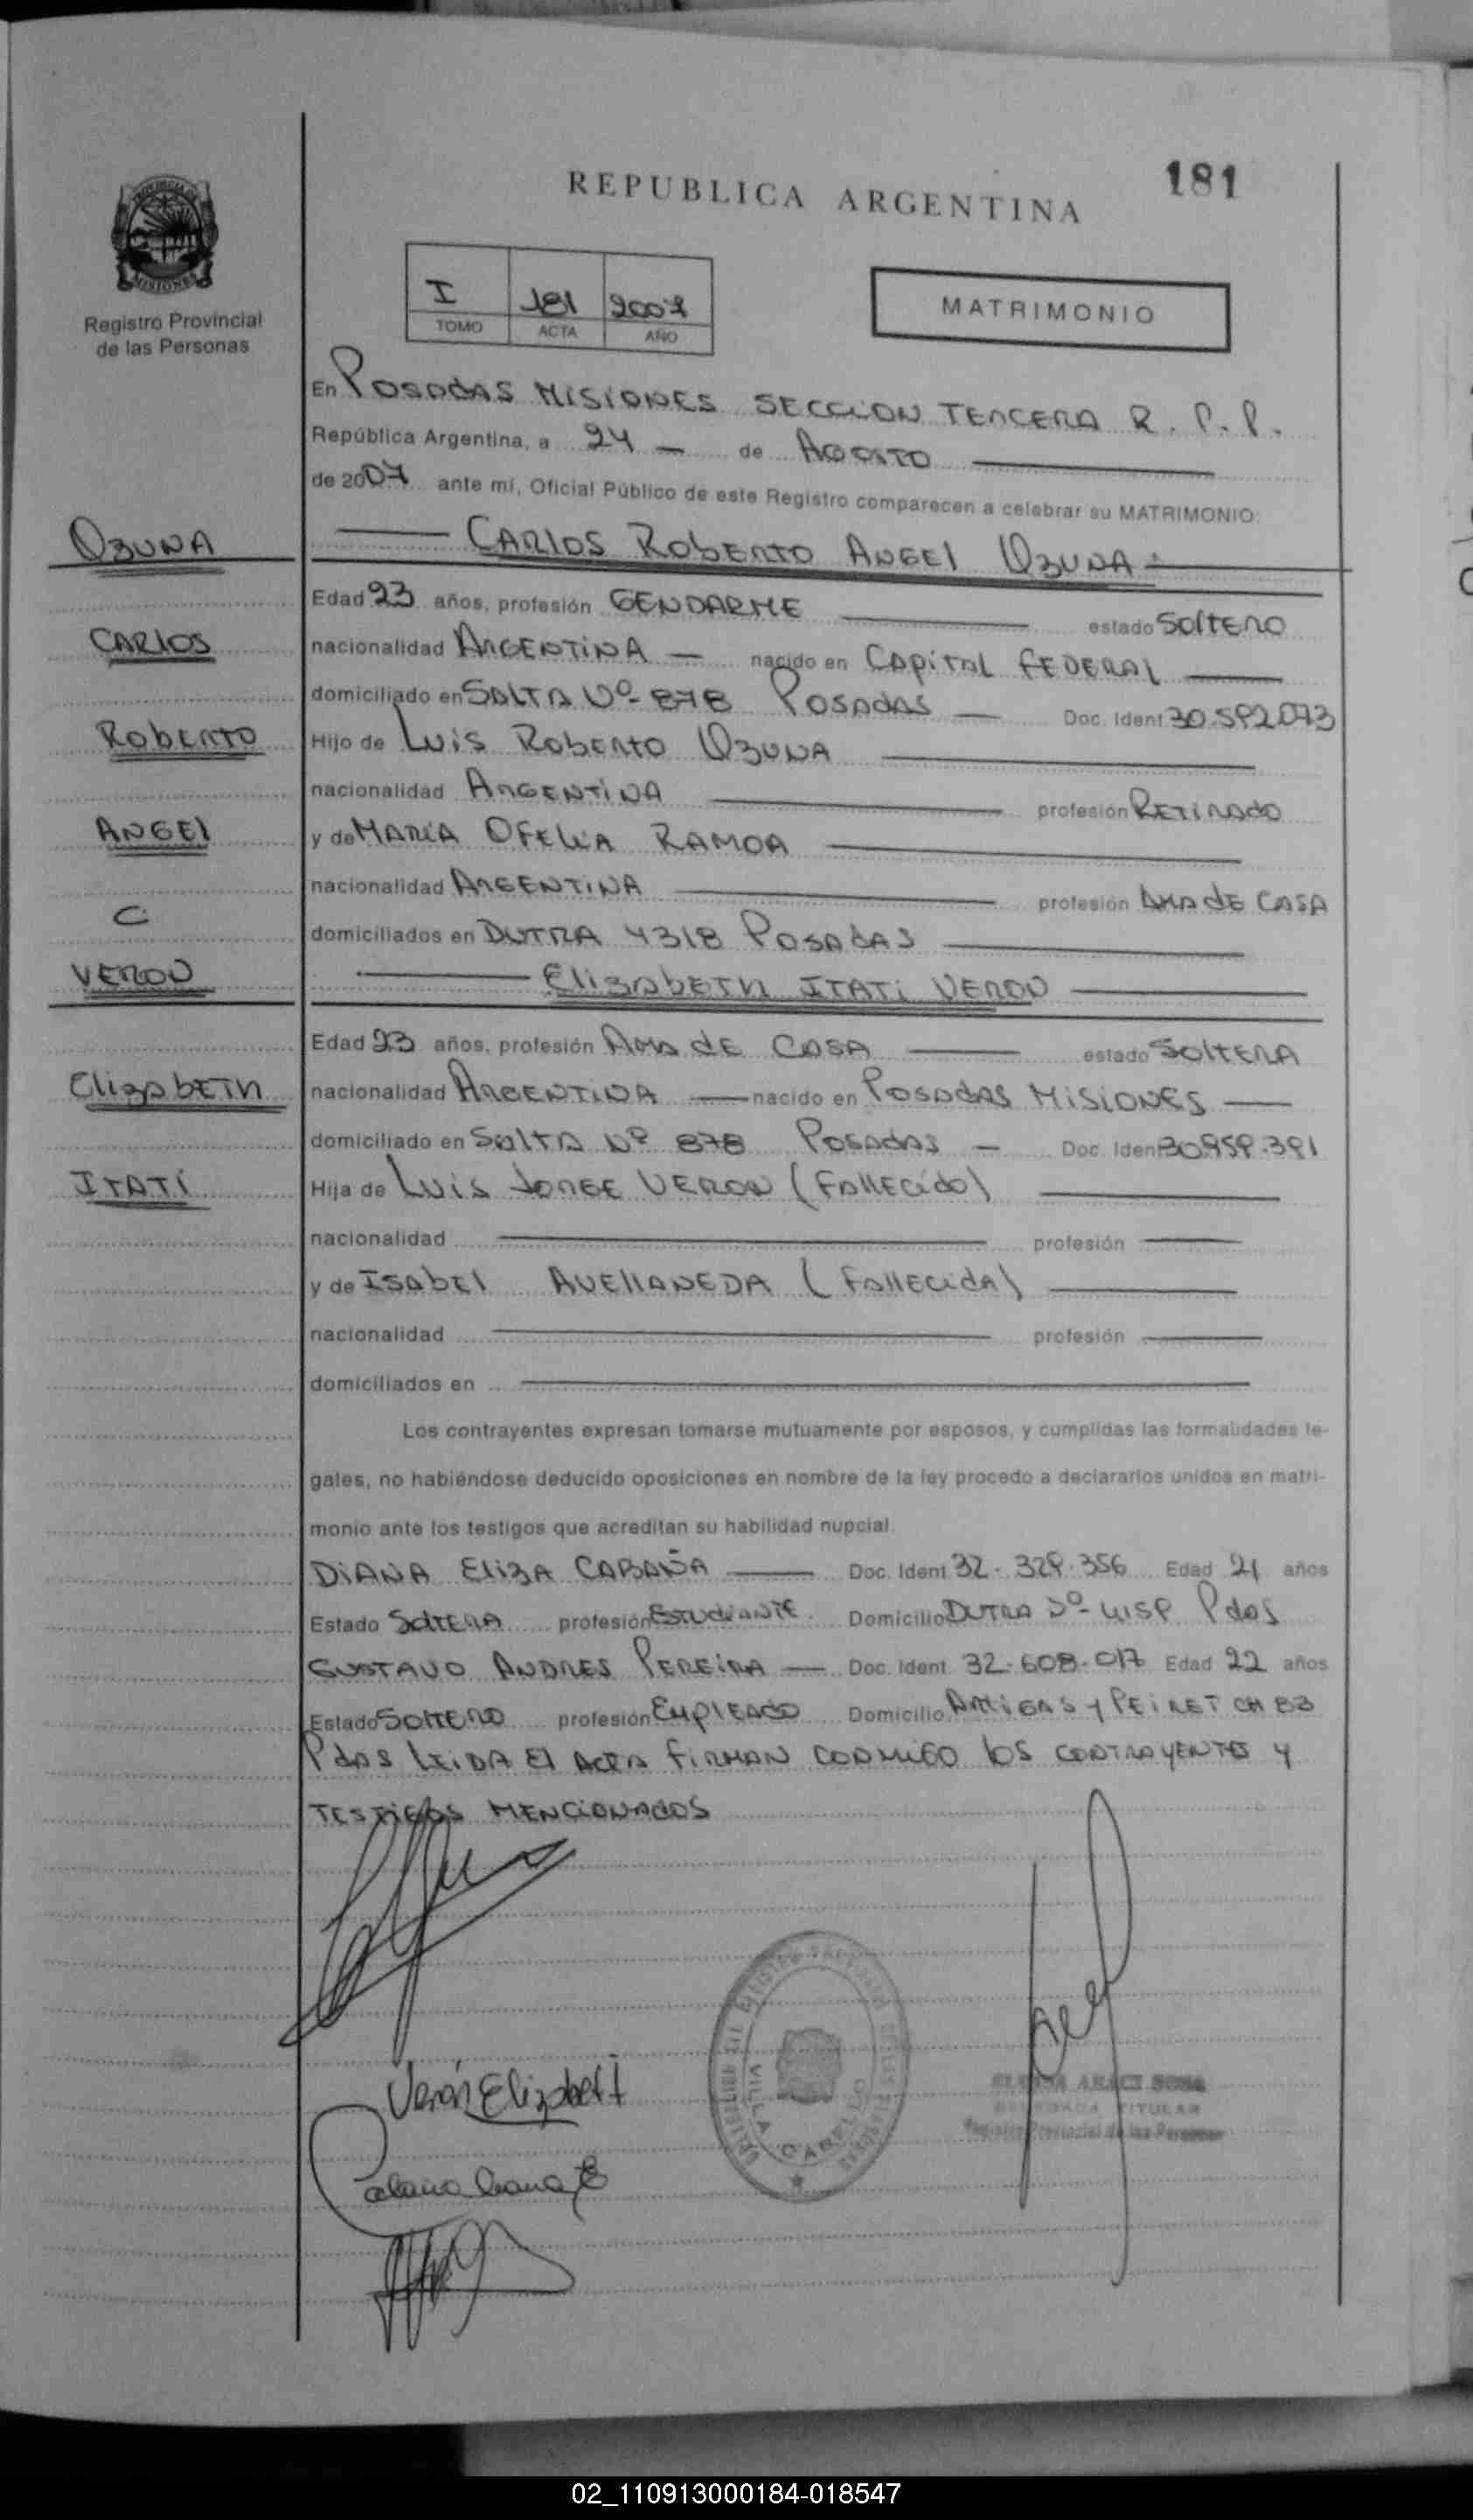 REPUBLICA ARGENTINA
181
MISIONES
Registro Provincial
de las Personas
I 181 2007
TOMO ACTA AÑO
MATRIMONIO
En POSADAS MISIONES SECCION TERCERA R. P. P.
República Argentina, a 24 — de AGOSTO
de 2007 ante mí, Oficial Público de este Registro comparecen a celebrar su MATRIMONIO:
OZUNA
CARLOS ROBERTO ANGEL OZUNA
Edad 23 años, profesión GENDARME estado SOLTERO
CARLOS
nacionalidad ARGENTINA — nacido en CAPITAL FEDERAL
domiciliado en SALTA Nº 878 POSADAS — Doc. Ident 30.592.073
ROBERTO
Hijo de LUIS ROBERTO OZUNA
nacionalidad ARGENTINA profesión RETIRADO
ANGEL
y de MARIA OFELIA RAMOA
nacionalidad ARGENTINA profesión AMA DE CASA
C
domiciliados en DUTRA 4318 POSADAS
VERON
ELIZABETH ITATI VERON
Edad 23 años, profesión AMA DE CASA estado SOLTERA
ELIZABETH
nacionalidad ARGENTINA — nacido en POSADAS MISIONES —
domiciliado en SALTA Nº 878 POSADAS — Doc. Ident 30.959.391
ITATÍ
Hija de LUIS JORGE VERON (FALLECIDO)
nacionalidad profesión
y de ISABEL AVELLANEDA (FALLECIDA)
nacionalidad profesión
domiciliados en
Los contrayentes expresan tomarse mutuamente por esposos, y cumplidas las formalidades le-
gales, no habiéndose deducido oposiciones en nombre de la ley procedo a declararlos unidos en matri-
monio ante los testigos que acreditan su habilidad nupcial.
DIANA ELIZA CABAÑA — Doc. Ident 32.329.356 Edad 21 años
Estado SOLTERA profesión ESTUDIANTE. Domicilio DUTRA Nº 4159 Pdas
GUSTAVO ANDRES PEREIRA — Doc. Ident 32.608.017 Edad 22 años
Estado SOLTERO profesión EMPLEADO Domicilio ARTIGAS Y PEIRET CH 83
Pdas LEIDA EL ACTA FIRMAN CONMIGO LOS CONTRAYENTES Y
TESTIGOS MENCIONADOS
Verón Elizabett
VILLA CABELLO
ARACI SOSA
DELEGADA TITULAR
Registro Provincial de las Personas
02_110913000184-018547